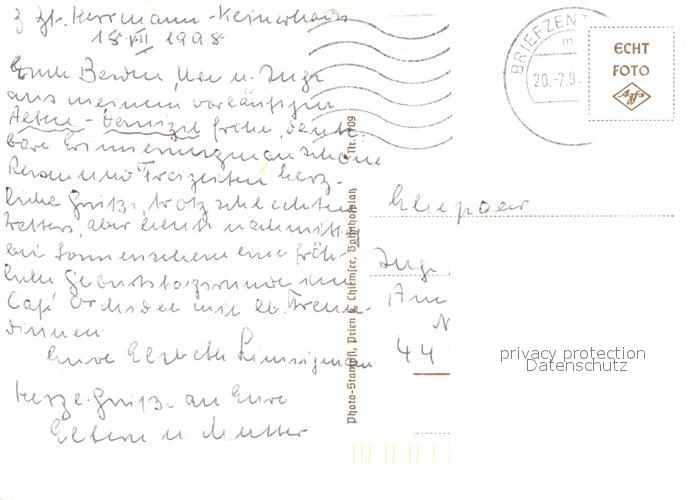 z. Zt. Herrmann-Keinerhaus
18 VII 1998
Euch Beiden, Uwe u. Inge
aus meinem vorläufigen
Alten- frohe, dank-
bare Erinnerungen an schöne
Reisen und Freizeiten herz-
liche Grüße, trotz schlechten
Wetters, aber heute nachmittag
bei Sonnenschein eine fröh-
liche Geburtstagsrunde im
Café Orchidee mit lb. Freun-
dinnen
Eure Elisabeth
Herzl. Grüße an Eure
Eltern u. Mutter.
Photo-Stampfl, Prien a. Chiemsee, Bahnhofplatz Nr. 709
BRIEFZENT
m
20.-7.9.
ECHT
FOTO
Agfa
Ehepaar
Inge
Am
N
44
privacy protection
Datenschutz